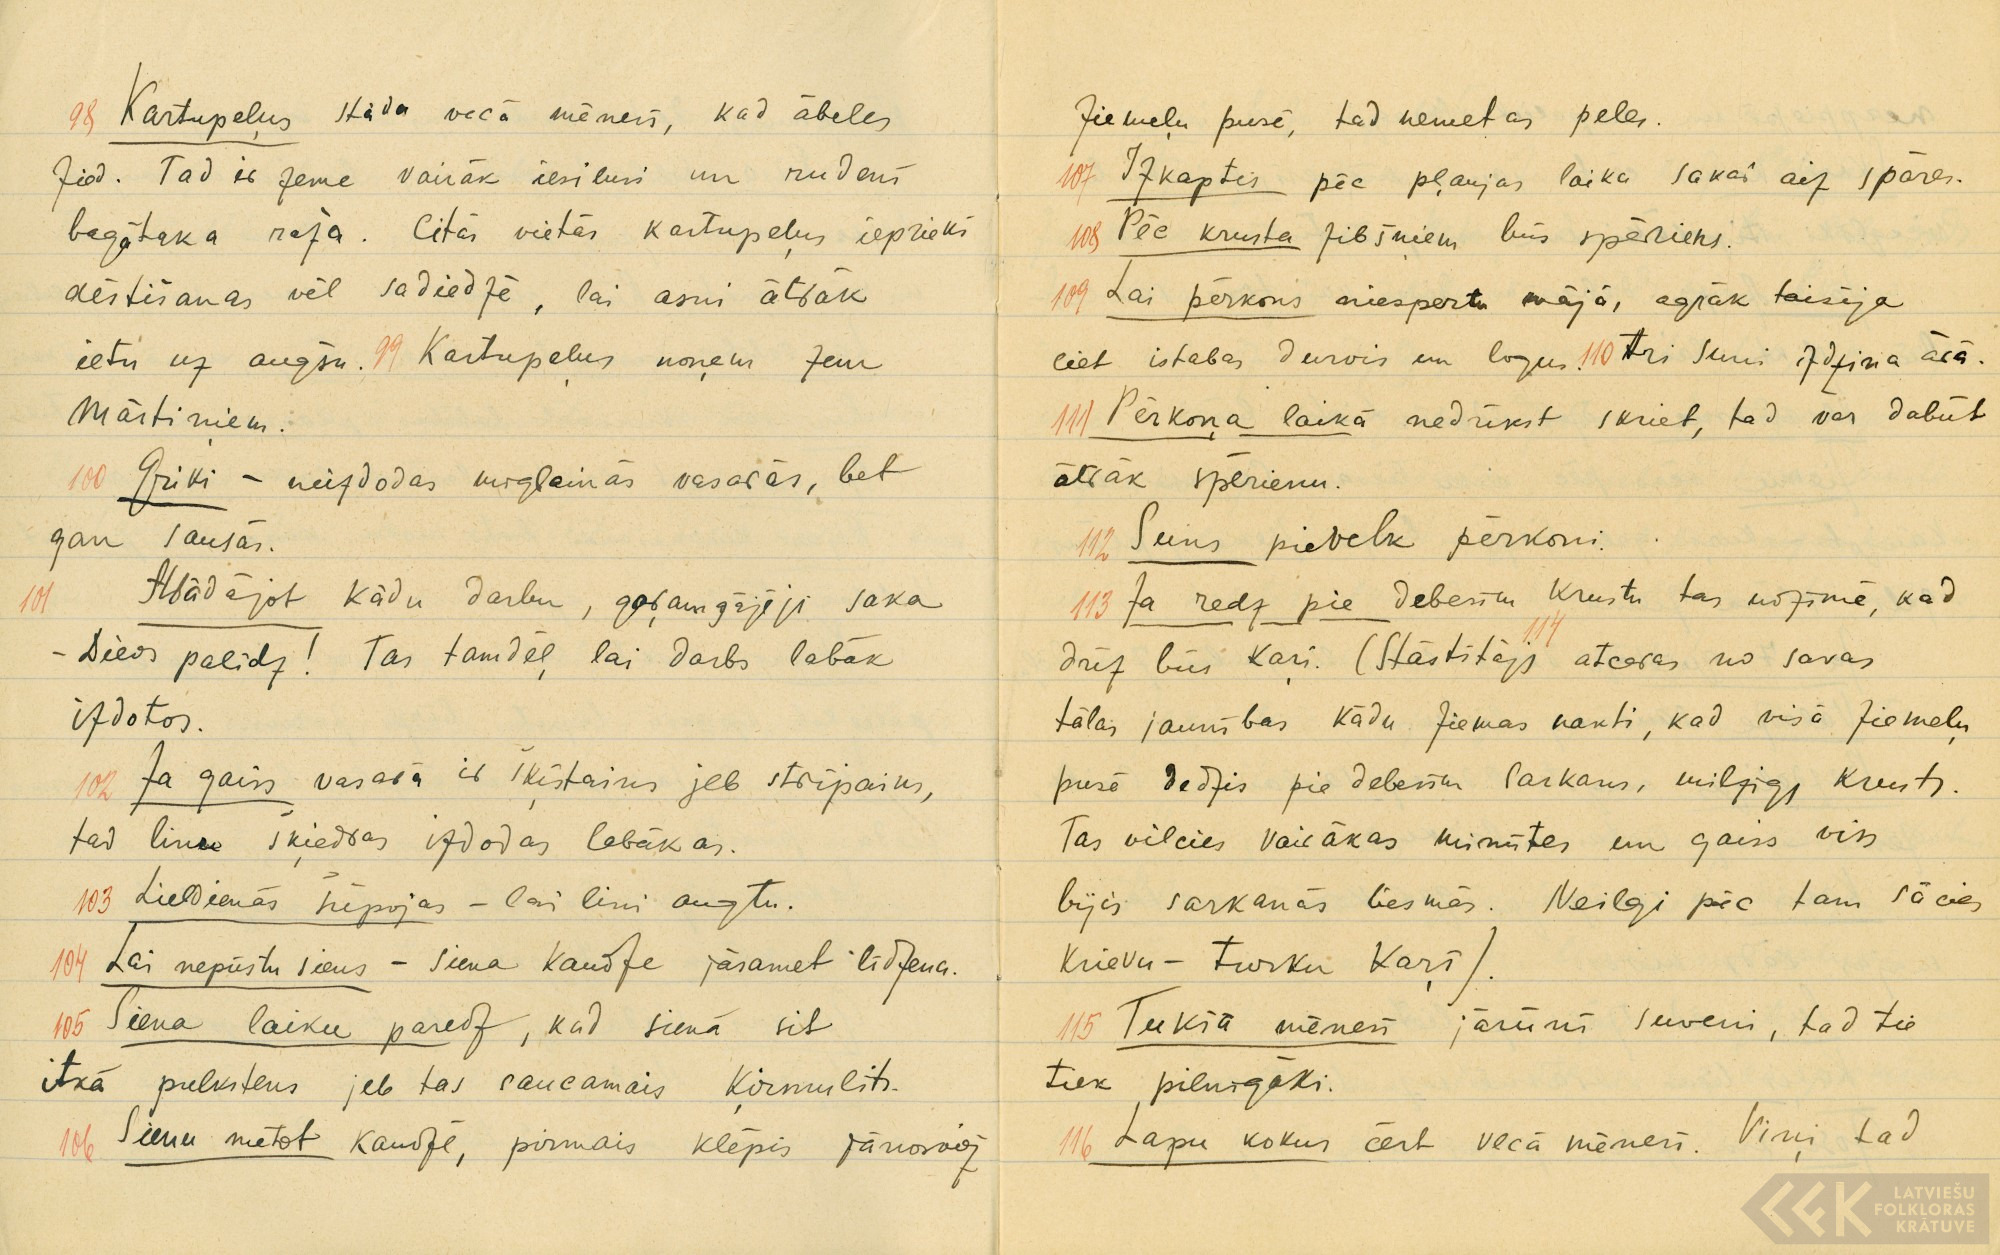 98 Kartupeļus stāda vecā mēnesī, kad ābeles
zied. Tad ir zeme vairāk iesilusi un rudenī
bagātāka raža. Citās vietās kartupeļus iepriekš
dēstīšanas vēl sadiedzē, lai asni ātrāk
ietu uz augšu. 99 Kartupeļus noņem zem
Mārtiņiem.
100 Griķi – neizdodas miglainās vasarās, bet
gan sausās.
101 Strādājot kādu darbu, garāmgājēji saka
– Dievs palīdz! Tas tamdēļ, lai darbs labāk
izdotos.
102 Ja gaiss vasarā ir šķistains jeb strīpains,
tad linu šķiedras izdodas labākas.
103 Lieldienās šūpojas – lai lini augtu.
104 Lai nepūstu siens – siena kaudze jāsamet līdzena.
105 Siena laiku paredz, kad sienā sit
itkā pulkstens jeb tas saucamais ķirmulītis.
106 Sienu metot kaudzē, pirmais klēpis jānosviež
ziemeļu pusē, tad nemetas peles.
107 Izkaptis pēc pļaujas laika sakar aiz spāres.
108 Pēc krusta zibšņiem būs spēriens.
109 Lai pērkons niespertu mājā, agrāk taisīja
ciet istabas durvis un logus. 110 Arī suni izdzina ārā.
111 Pērkoņa laikā nedrīkst skriet, tad var dabūt
ātrāk spērienu.
112 Suns pievelk pērkoni.
113 Ja redz pie debesīm krustu tas nozīmē, kad
drīz būs kaŗš. (Stāstītājs 114 atceras no savas
tālas jaunības kādu ziemas nakti, kad visā ziemeļu
pusē dedzis pie debesīm sarkans, milzīgs krusts.
Tas vilcies vairākas minūtes un gaiss viss
bijis sarkanās liesmās. Neilgi pēc tam sācies
Krievu – turku kaŗš).
115 Tukšā mēnesī jārūnī suveņi, tad tie
tiek pilnīgāki.
116 Lapu kokus cērt vecā mēnesī. Viņi tad
LATVIEŠU
FOLKLORAS
KRĀTUVE